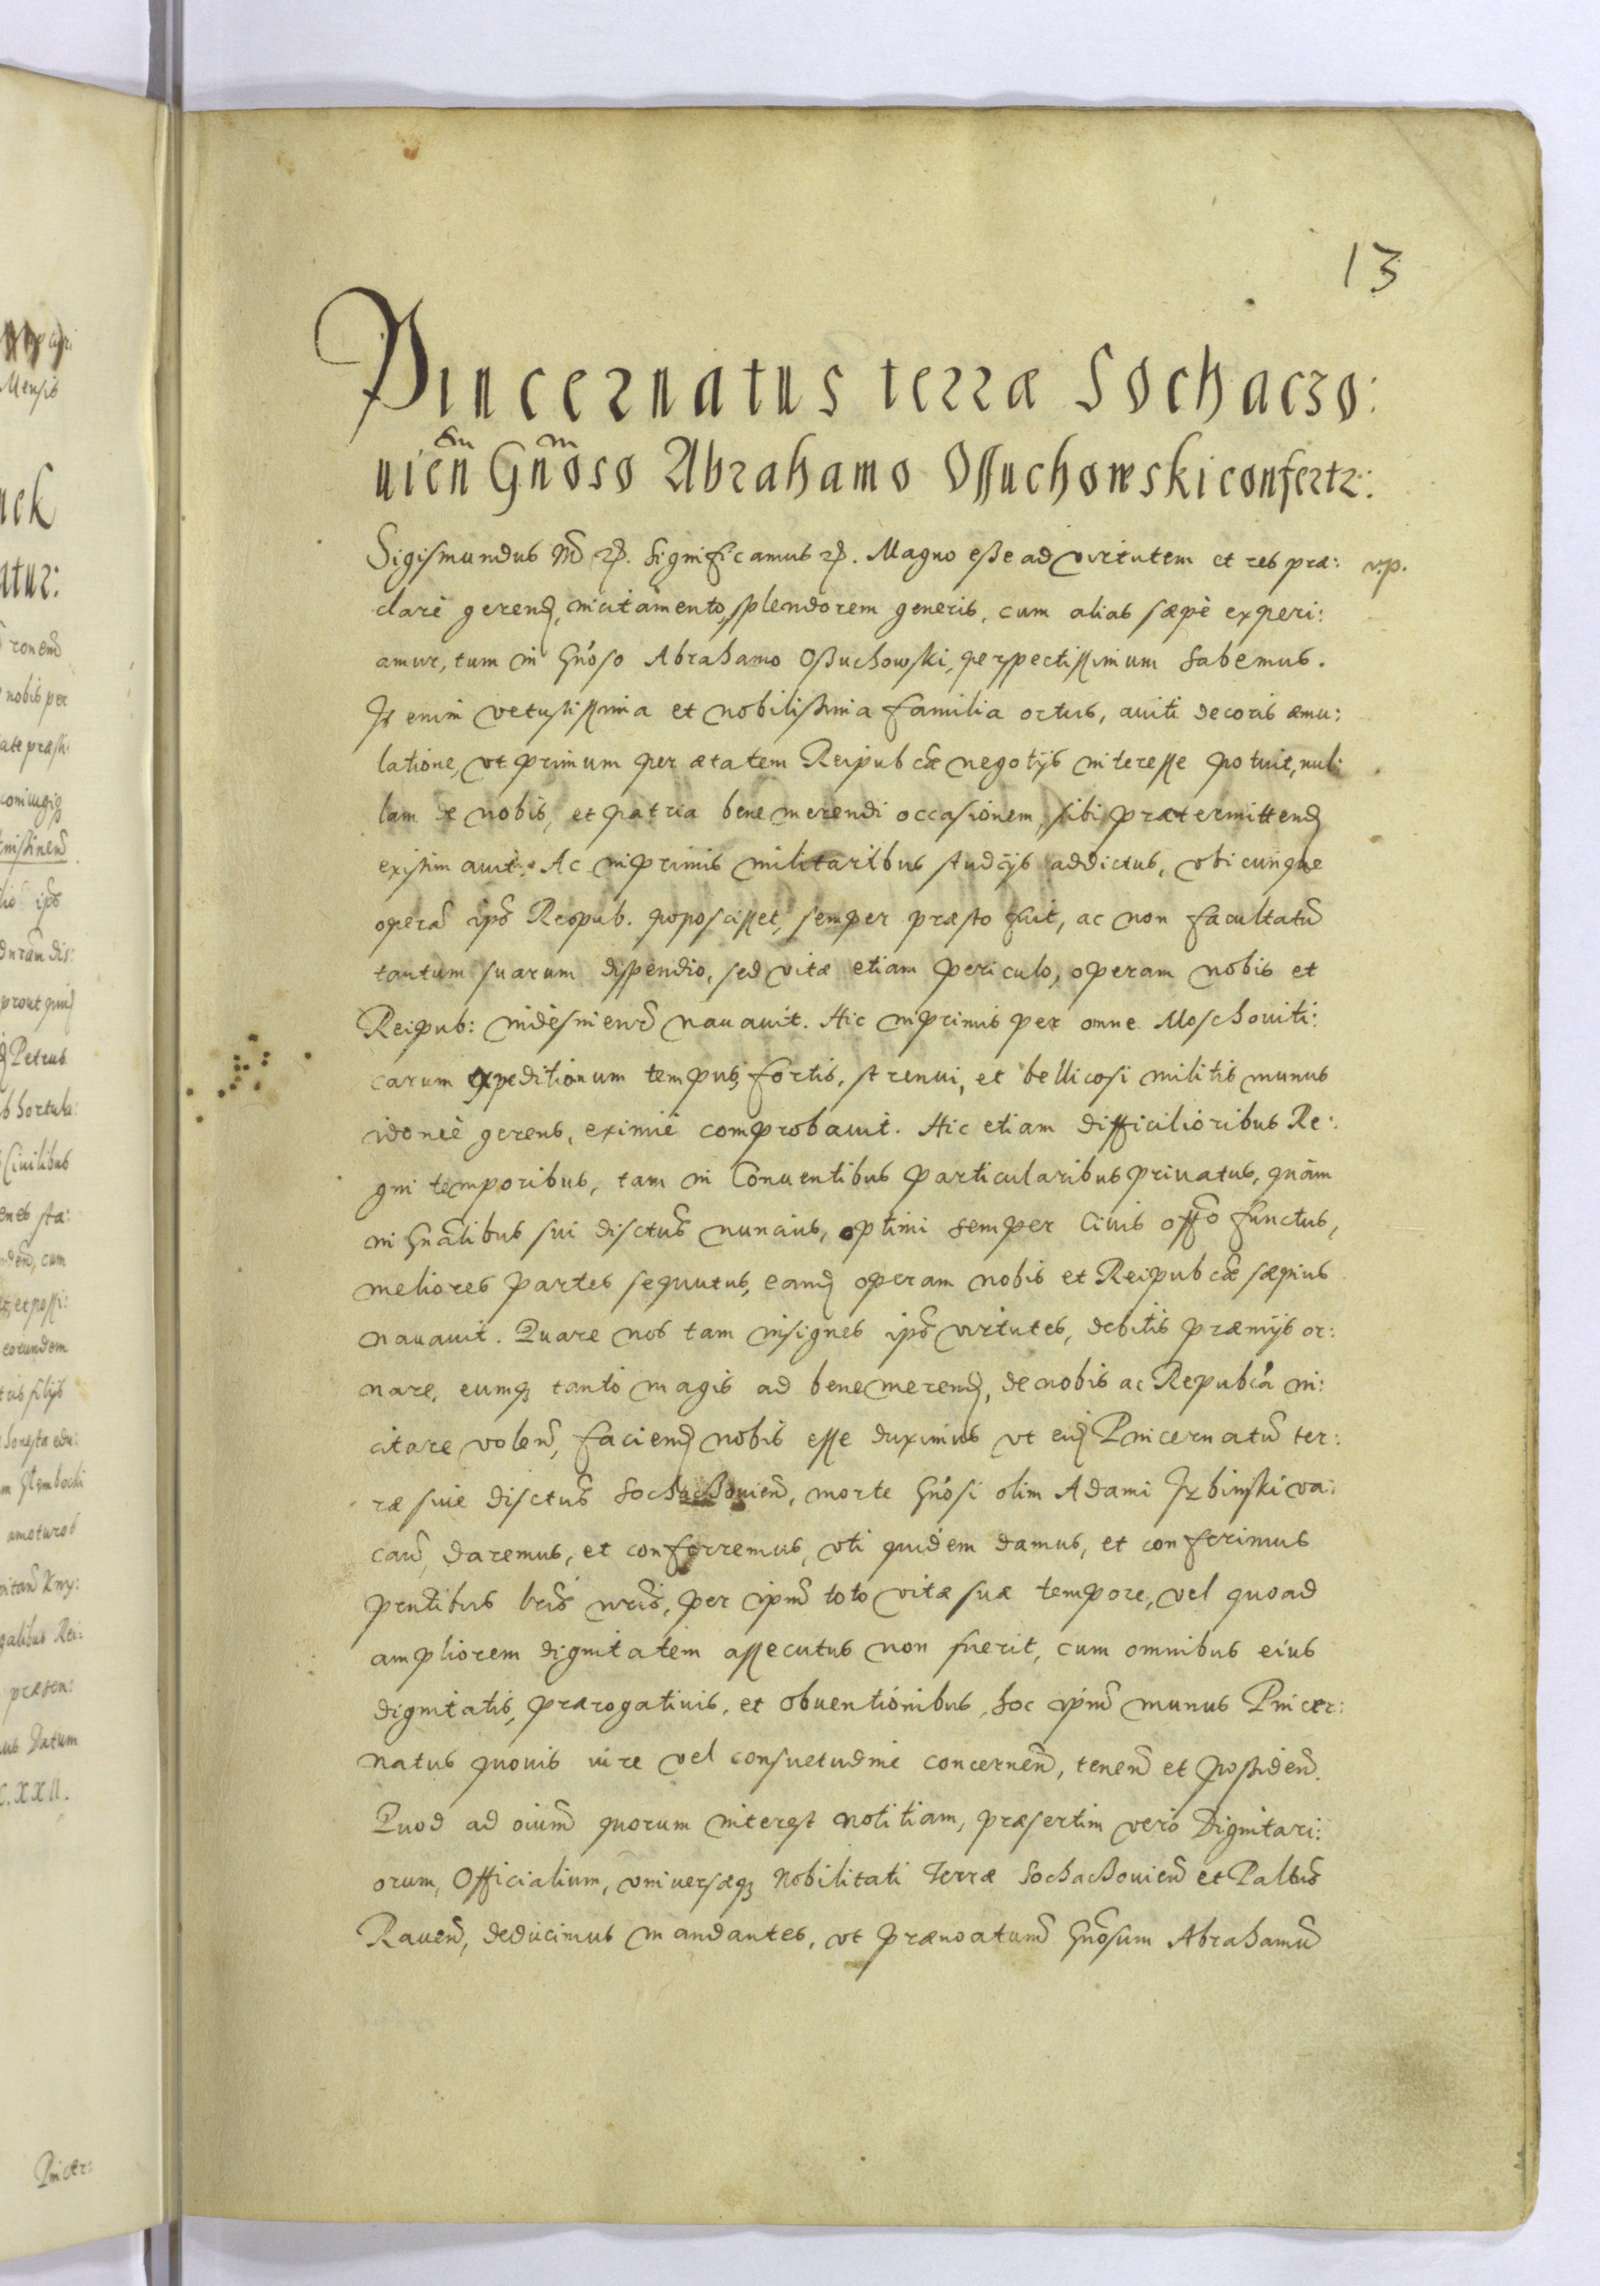 13
Pincernatus terræ Sochaczo:
uień Gnoso Abrahamo Ossuchowski confertr:
Sigismundus 3us etc. Significamus etc. Magno esse ad virtutem et res præ: v.p.
clarè gerend, incitamento, splendorem generis, cum alias sæpè experi:
amur, tum in Gnoso Abrahamo Oßuchowski, perspectissimum habemus.
Is enim vetustissima et nobilissima familia ortus, auiti decoris æmu:
latione, vt primum per ætatem Reipubcæ negotijs interesse potuit, nul:
lam de nobis, et patria bene merendi occasionem, sibi prætermittend
existimauit. Ac inprimis militaribus studijs addictus, vbicunque
operā ips Respub. poposcisset, semper præsto fuit, ac non facultatū
tantum suarum dispendio, sed vitæ etiam periculo, operam nobis et
Reipub: indesinen nauauit. Hic inprimis per omne Moschouiti:
carum expeditionum tempus, fortis, strenui, et bellicosi militis munus
idoneè gerens, eximiè comprobauit. Hic etiam difficilioribus Re:
gni temporibus, tam in Conuentibus particularibus priuatus, quàm
in Gnalibus sui disctus nuncius, optimi semper Ciuis offo functus,
meliores partes sequutus, eand operam nobis et Reipubcæ sæpius
nauauit. Quare nos tam insignes ips virtutes, debitis præmijs or:
nare, eumq tanto magis ad bene merend, de nobis ac Repubca in:
citare volen, faciend nobis esse duximus vt eid Pincernatū ter:
ræ siue disctus Sochaßouien, morte Gnosi olim Adami Jzbinski va:
can, daremus, et conferremus, vti quidem damus, et conferimus
prntibus lris nris, per ipm toto vitæ suæ tempore, vel quoad
ampliorem dignitatem assecutus non fuerit, cum omnibus eius
dignitatis, prærogatiuis, et obuentionibus, hoc ipm munus Pincer:
natus quouis iure vel consuetudine concernen, tenen et possiden.
Quod ad oium quorum interest notitiam, præsertim verò Dignitari:
orum, Officialium, vniuersæq Nobilitati Terræ Sochaßouien et Paltus
Rauen, deducimus mandantes, vt prænoatum Gnosum Abrahamū